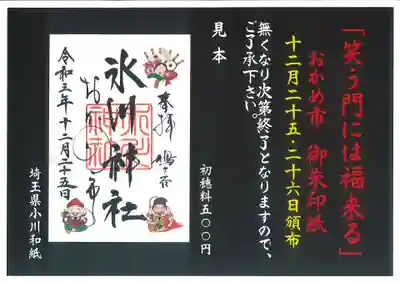 「笑う門には福来る」
おかめ市 御朱印紙
十二月二十五・二十六日頒布
無くなり次第終了となりますので、
ご了承下さい。
見本
初穂料五〇〇円
奉拝 鳩ヶ谷
氷川神社
おかめ市
令和三年十二月二十五日
埼玉県小川和紙